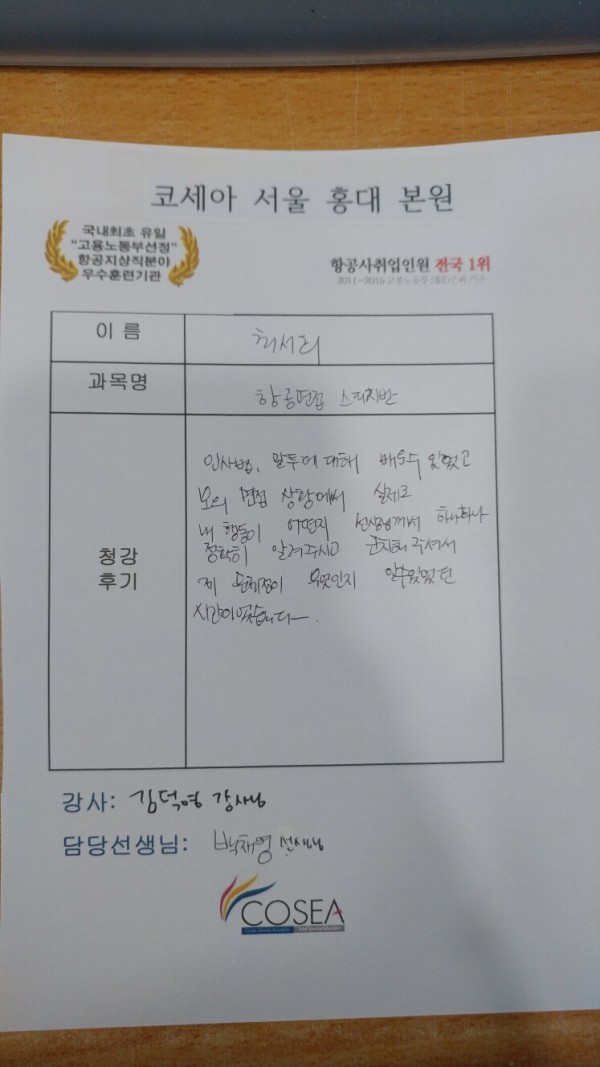 코세아 서울 홍대 본원
국내최초 유일
"고용노동부선정"
항공지상직분야
우수훈련기관
항공사취업인원 전국 1위
이 름
최서희
과목명
항공면접 스피치반
청강
후기
인사법, 말투에 대해 배울수 있었고
모의 면접 상황에서 실제로
내 행동이 어떤지 선생님께서 하나하나
정확히 알려주시고 코치해 주셔서
제 문제점이 무엇인지 알수있었던
시간이었습니다~.
강사: 김덕영 강사님
담당선생님: 박채영 선생님
COSEA